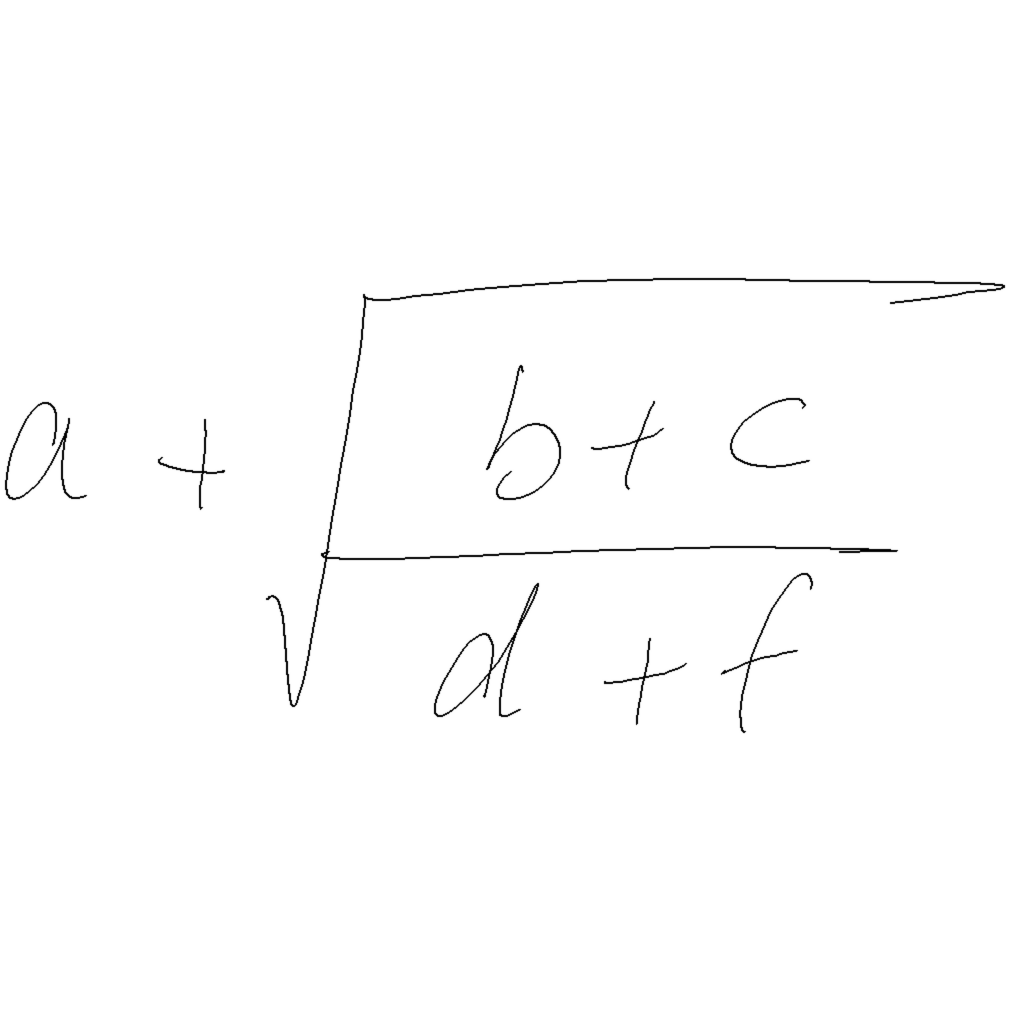 a + \sqrt{\frac{b + c}{d + f}}